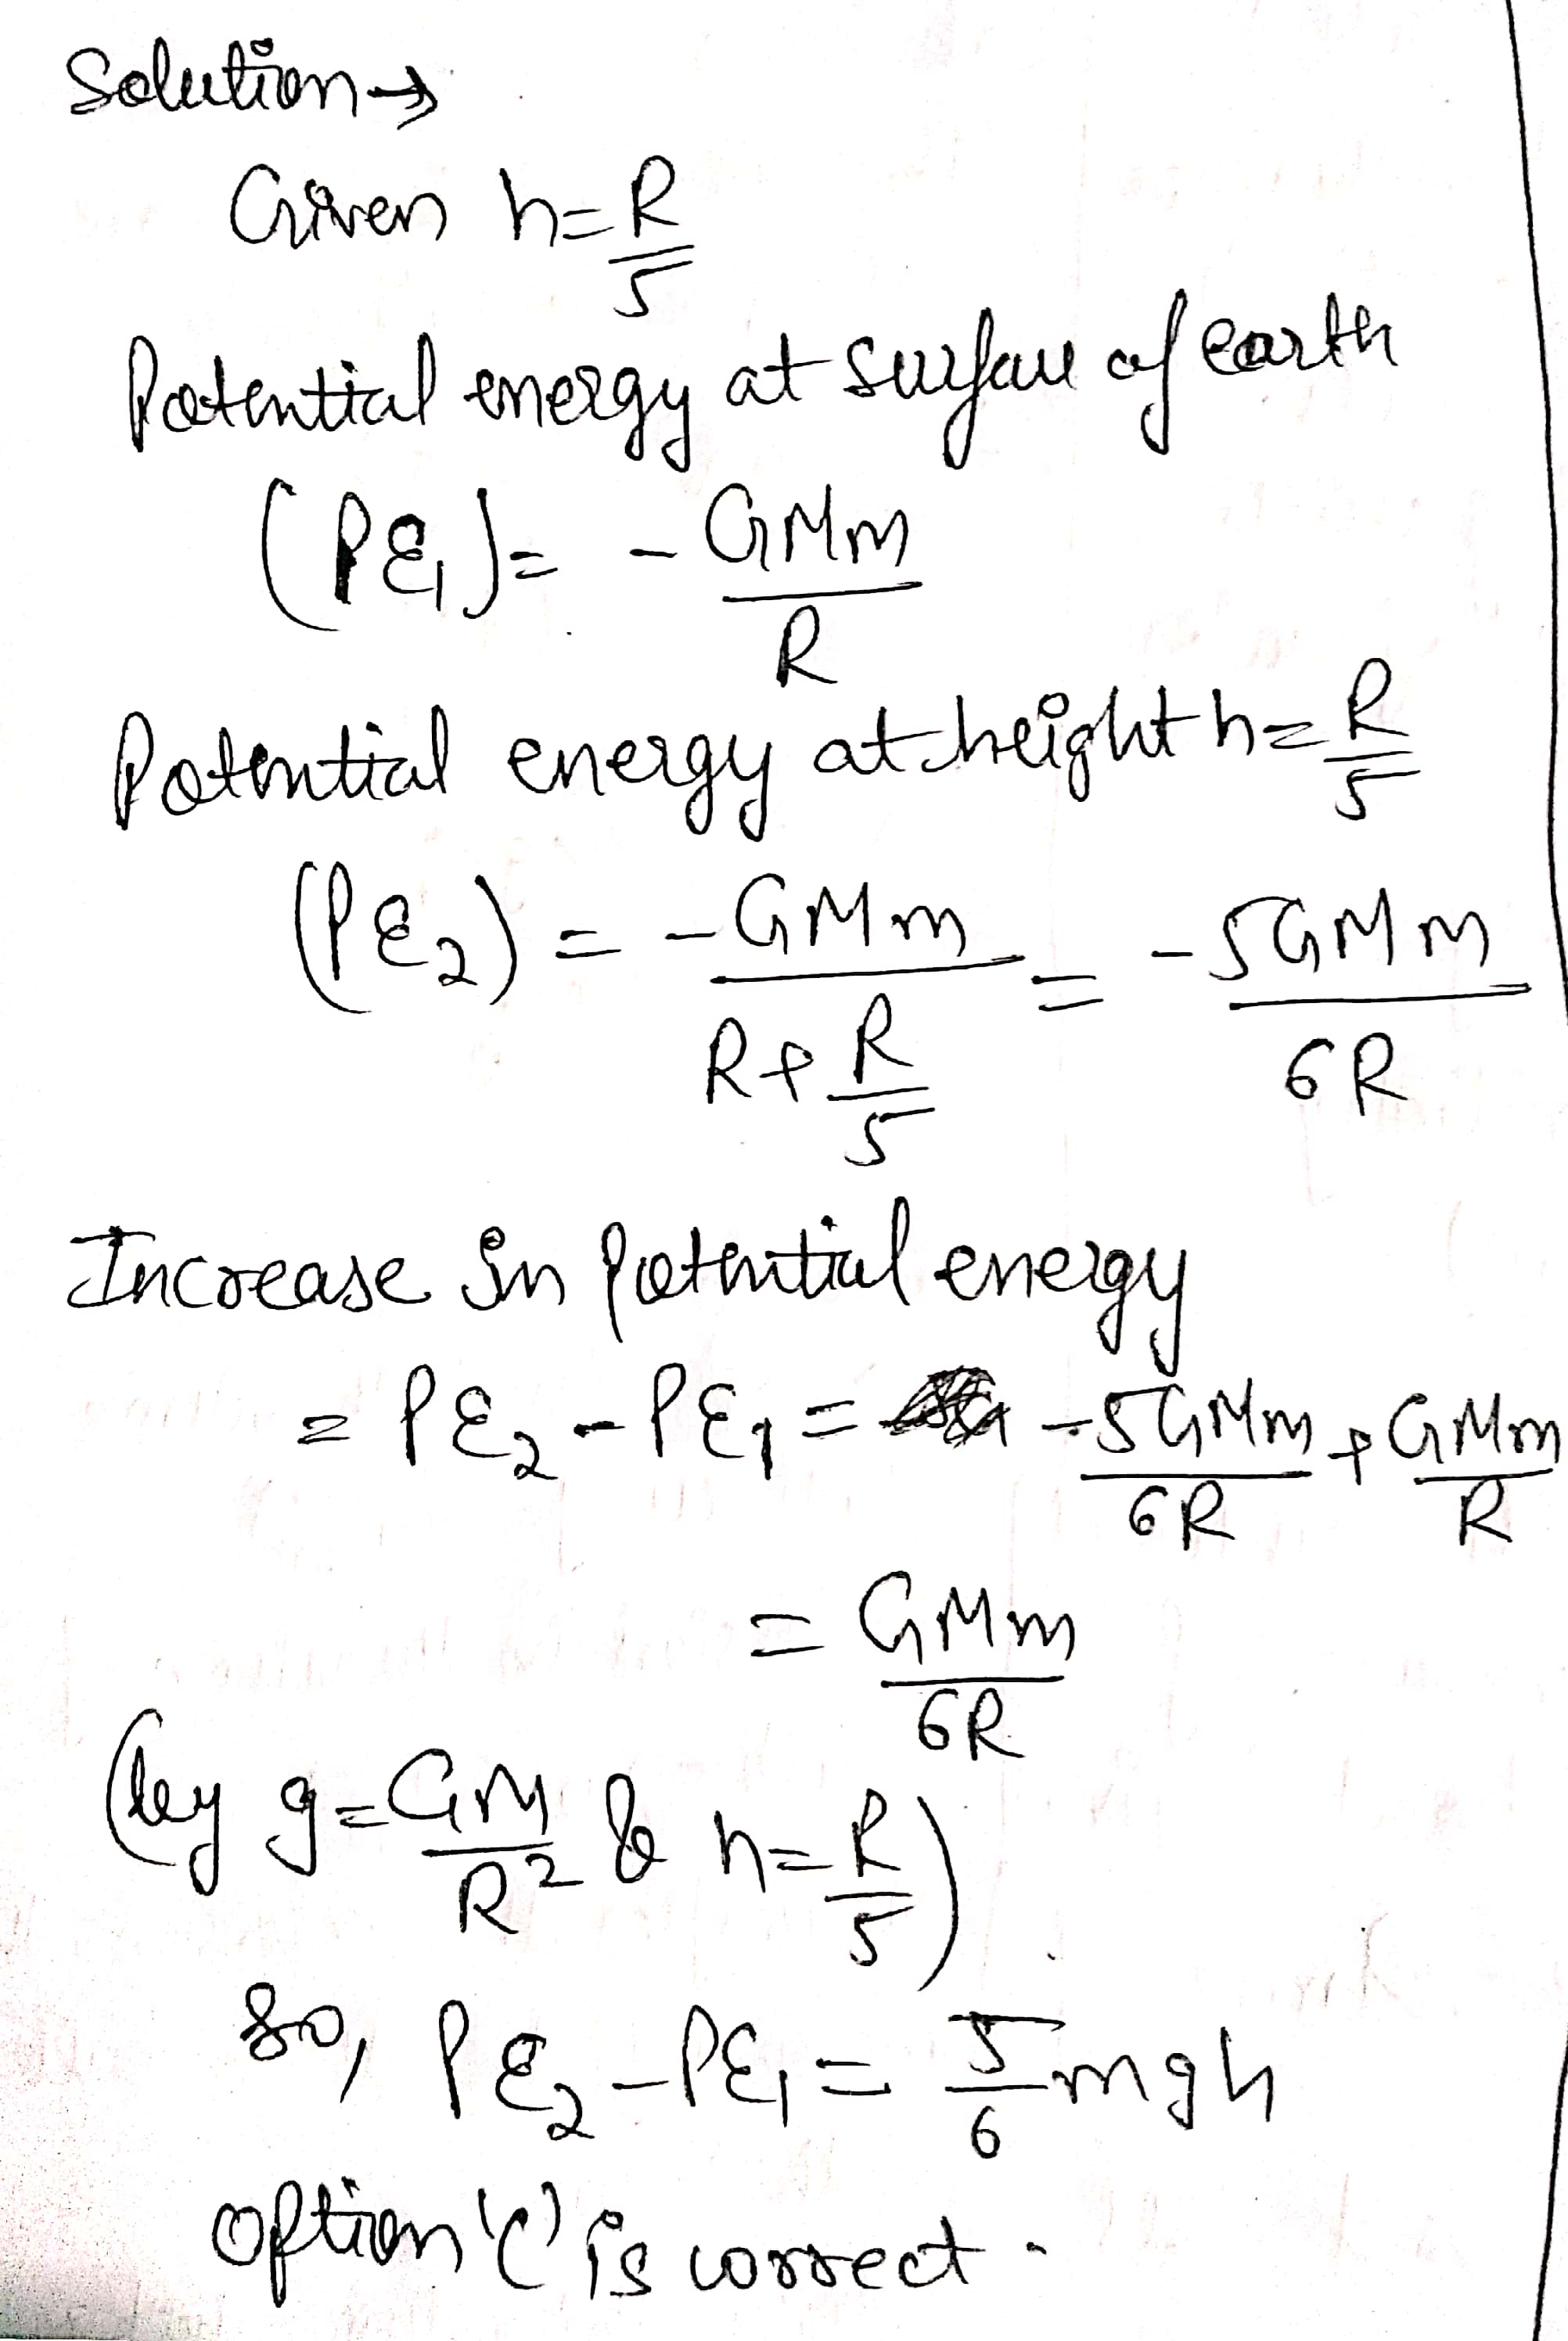 Solution →
Given h = R/5
Potential energy at surface of earth
(PE₁) = - GMm/R
Potential energy at height h = R/5
(PE₂) = - GMm/(R + R/5) = - 5GMm/6R
Increase in potential energy
= PE₂ - PE₁ = - 5GMm/6R + GMm/R
= GMm/6R
(by g = GM/R² & h = R/5)
So, PE₂ - PE₁ = 5/6 mgh
option 'C' is correct.